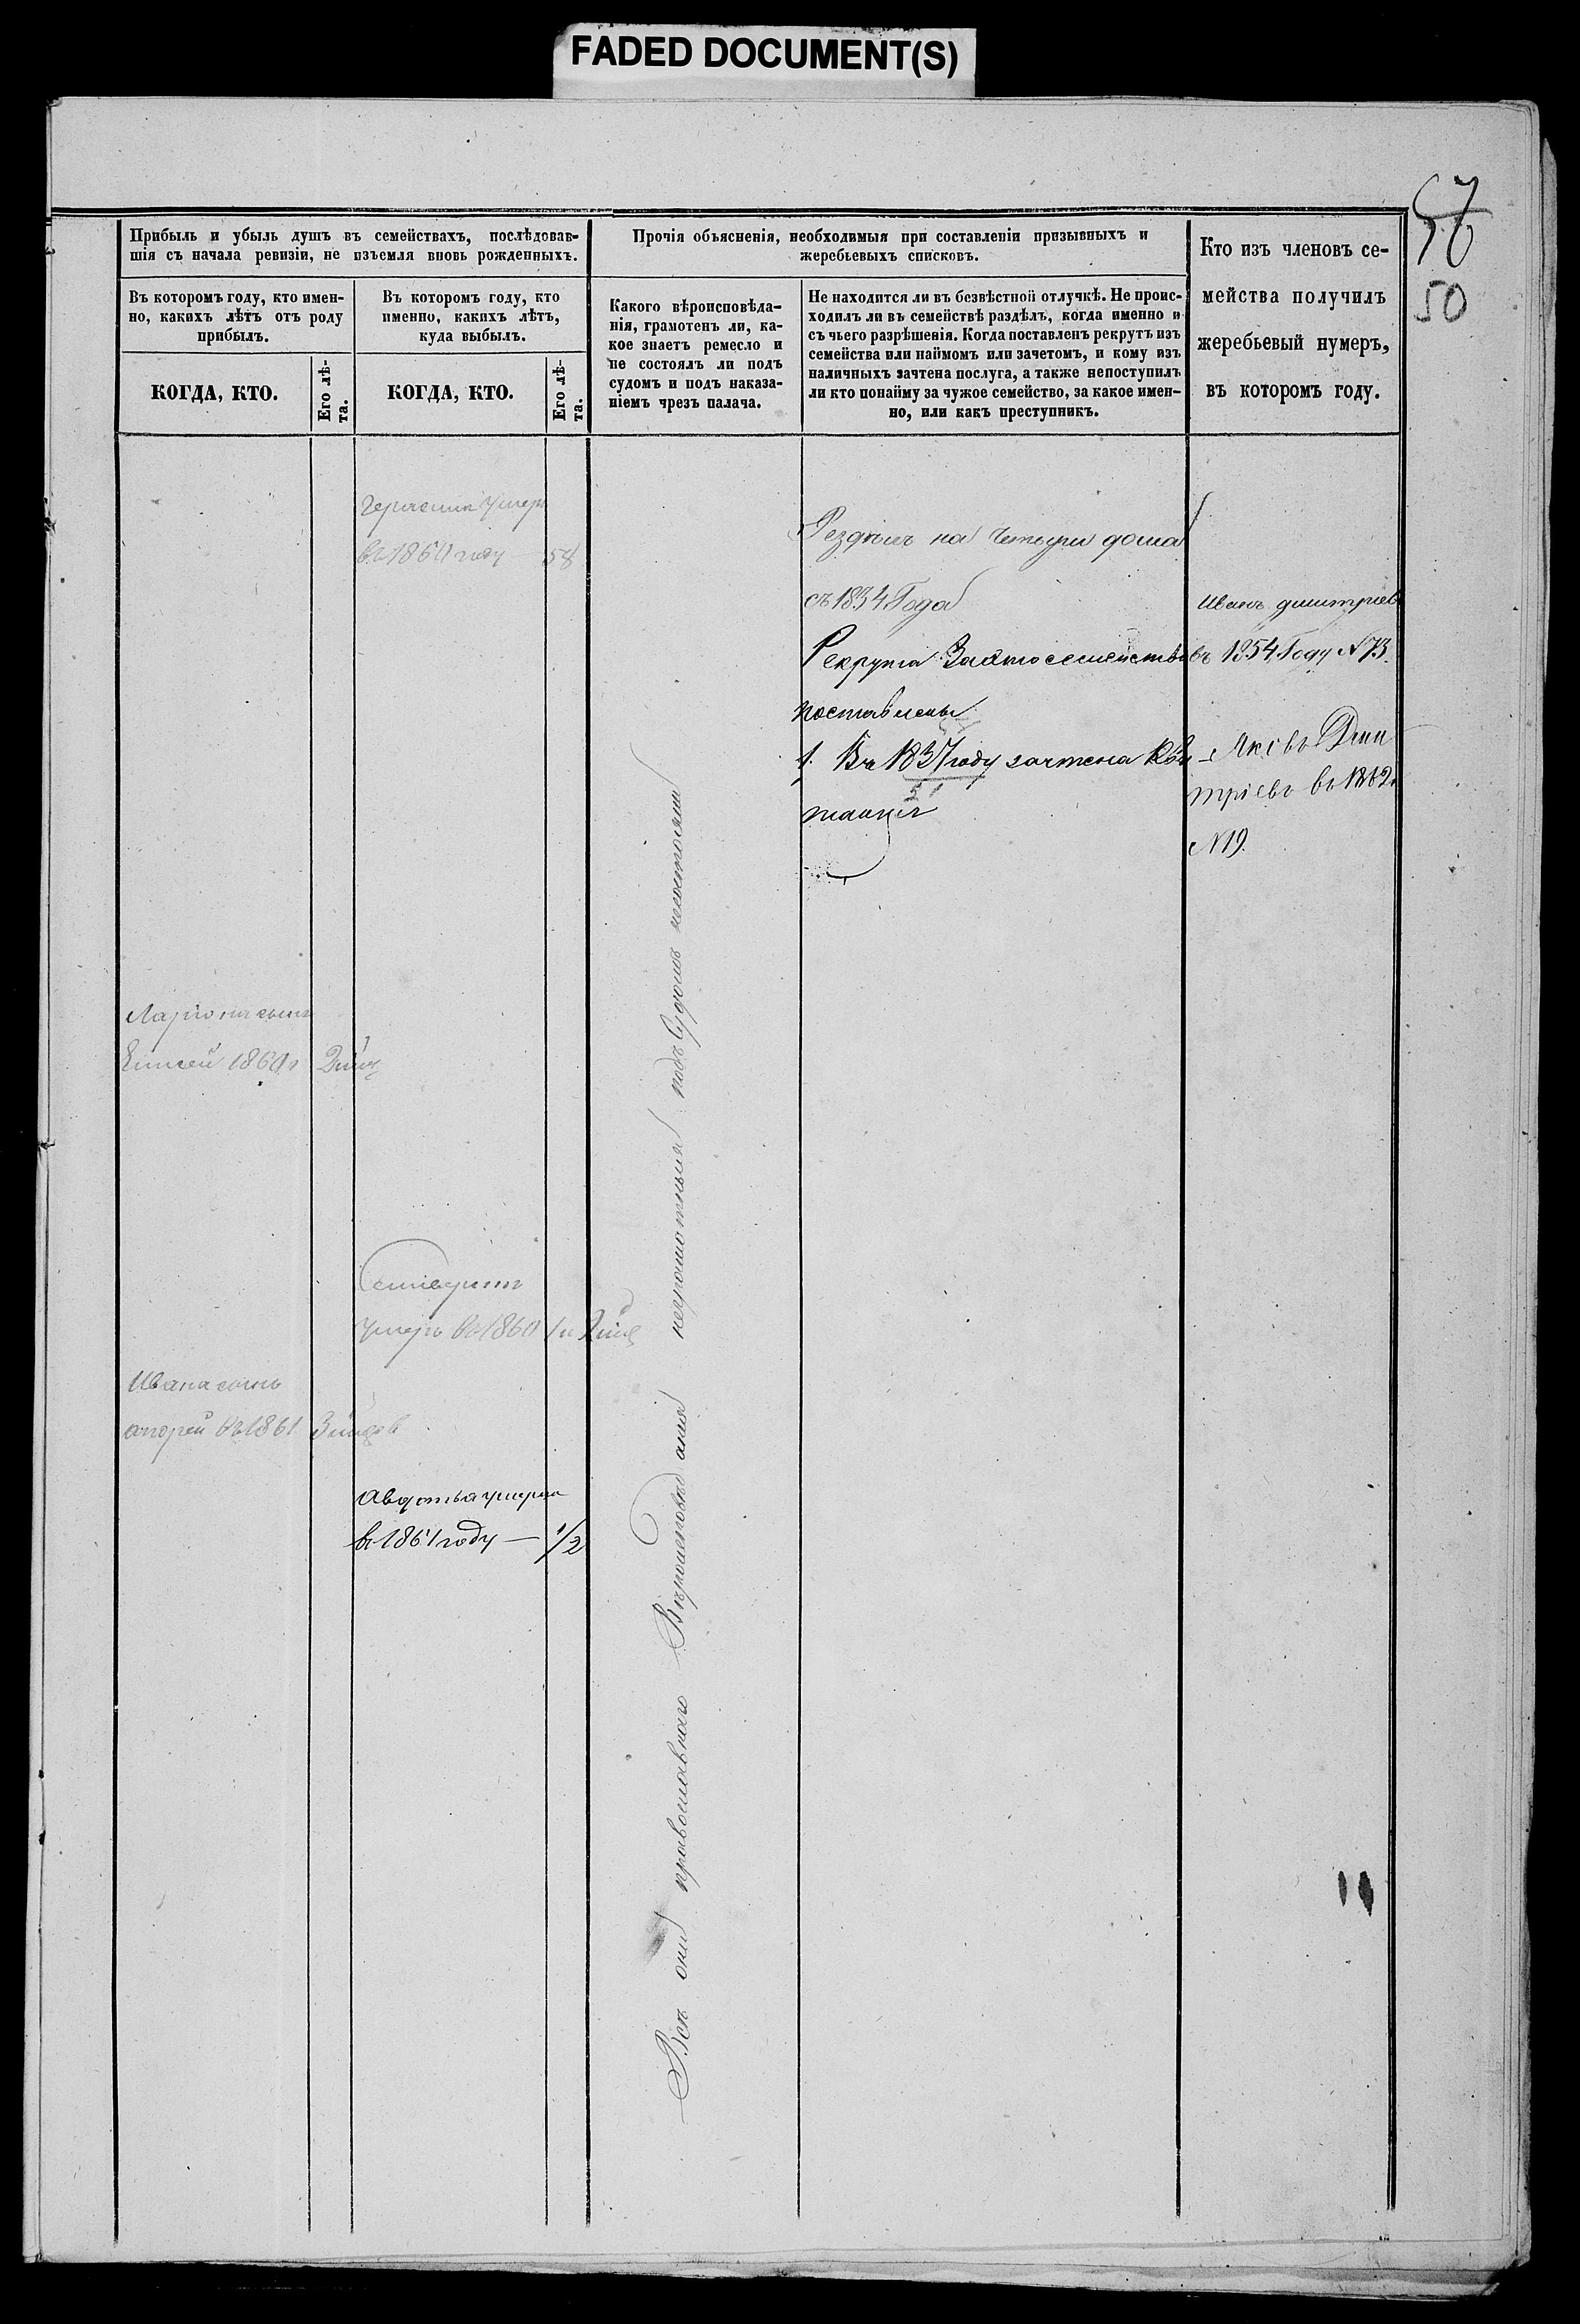 FADED DOCUMENT(S)
57
56
50
Прибыль и убыль душъ въ семействахъ, послѣдовав-
шія съ начала ревизіи, не изъемля вновь рожденныхъ.
Въ которомъ году, кто имен-
но, какихъ лѣтъ отъ роду
прибылъ.
КОГДА, КТО.
Его лѣ-
та.
Въ которомъ году, кто
именно, какихъ лѣтъ,
куда выбылъ.
КОГДА, КТО.
Его лѣ-
та.
Прочія объясненія, необходимыя при составленіи призывныхъ и
жеребьевыхъ списковъ.
Какого вѣроисповѣда-
нія, грамотенъ ли, ка-
кое знаетъ ремесло и
не состоялъ ли подъ
судомъ и подъ наказа-
ніемъ чрезъ палача.
Не находится ли въ безвѣстной отлучкѣ. Не проис-
ходилъ ли въ семействѣ раздѣлъ, когда именно и
съ чьего разрѣшенія. Когда поставленъ рекрутъ изъ
семейства или наймомъ или зачетомъ, и кому изъ
наличныхъ зачтена послуга, а также непоступилъ
ли кто понайму за чужое семейство, за какое имен-
но, или какъ преступникъ.
Кто изъ членовъ се-
мейства получилъ
жеребьевый нумеръ,
въ которомъ году.
умеръ
въ 1860 году 58
Лариона сынъ
Елисей 1860
умеръ въ 1860
Ивана сынъ
андрей въ 1861
Авдотья умерла
в 1861 году — 1/2
Всѣ они православнаго Вѣроисповѣдания неграмотныя подъ Судомъ несостояли
Роздѣлъ на Четыри дома
съ 1834 Года
Рекрута За это семейство
поставлены
1. Въ 1837 году зачтена Кви
танция
51
Иванъ дмитриев
въ 1854 Году N 73.
Яковъ Дми
тріевъ въ 1862
N 19.